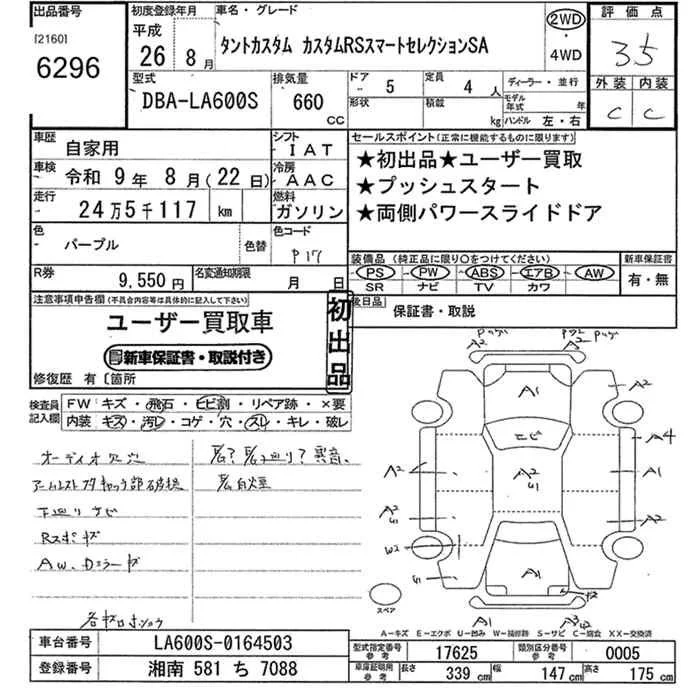 出品番号
[2160]
6296
初度登録年月
平成
26年8月
車名・グレード
タントカスタム カスタムRSスマートセレクションSA
2WD
・
4WD
評価点
3.5
外装 内装
C C
型式
DBA-LA600S
排気量
660
CC
ドア 5
形状
定員 4 人
積載 kg
ディーラー・並行
モデル年式 年
ハンドル 左・右
車歴 自家用
シフト IAT
車検 令和 9年 8月(22日)
冷房 AAC
走行 24万5千117 km
燃料 ガソリン
色 パープル
色替
色コード P17
R券 9,550円
名変通知期限 月 日
セールスポイント(正常に機能するものに限ります)
★初出品★ユーザー買取
★プッシュスタート
★両側パワースライドドア
装備品(純正品に限り○をつけてください)
PS PW ABS エアB AW
SR ナビ TV カワ
新車保証書
有・無
後日品 保証書・取説
注意事項申告欄(不具合内容等は具体的に記入して下さい)
ユーザー買取車
新車保証書・取説付き
初出品
修復歴 有〔箇所
検査員記入欄
FW キズ・飛石・ヒビ割・リペア跡・×要
内装 キズ・汚レ・コゲ・穴・スレ・キレ・破レ
オーディオ欠穴
下廻りサビ
Rスポキズ
AW、Dミラーキズ
白煙
A2 A2
A1
A2
ヒビ
A4
A2
A2
U1
A1
A2
U1
A2
W2
U1
A1
A1
スペア
A-キズ E-エクボ U-凹み W-補修跡 S-サビ C-腐食 XX-交換済
車台番号 LA600S-0164503
登録番号 湘南 581 ち 7088
型式指定番号 参考 17625
類別区分番号 参考 0005
車庫証明用 参考 長さ 339 cm 幅 147 cm 高さ 175 cm